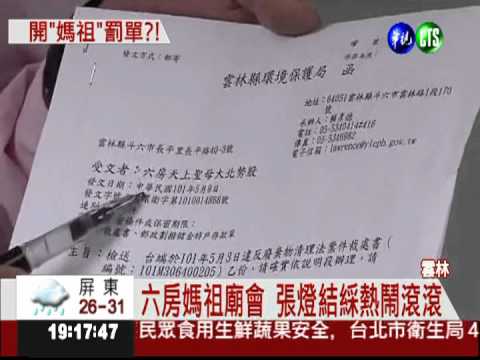 開"媽祖"罰單?!
華視 CTS
檔 號：
保存年限：
發文方式：郵寄
雲林縣環境保護局 函
地址：64051雲林縣斗六市雲林路1段170號
電話：05-5340414#416
傳真：05-5346982
電子信箱：lawrence@ylepb.gov.tw
雲林縣斗六市長平里長平路40-3號
受文者：六房天上聖母大北勢股
發文日期：中華民國101年5月8日
衛字第1010014868號
件或保密期限：
裁處書、郵政劃撥儲金特戶存款單
主旨：檢送 台端於101年5月3日違反廢棄物清理法案件裁處書(
編號：101M306400205)乙份，請確實依說明段辦理，請
雲林
屏東
26-31
六房媽祖廟會 張燈結綵熱鬧滾滾
19:17:47
民眾食用生鮮蔬果安全，台北市衛生局4